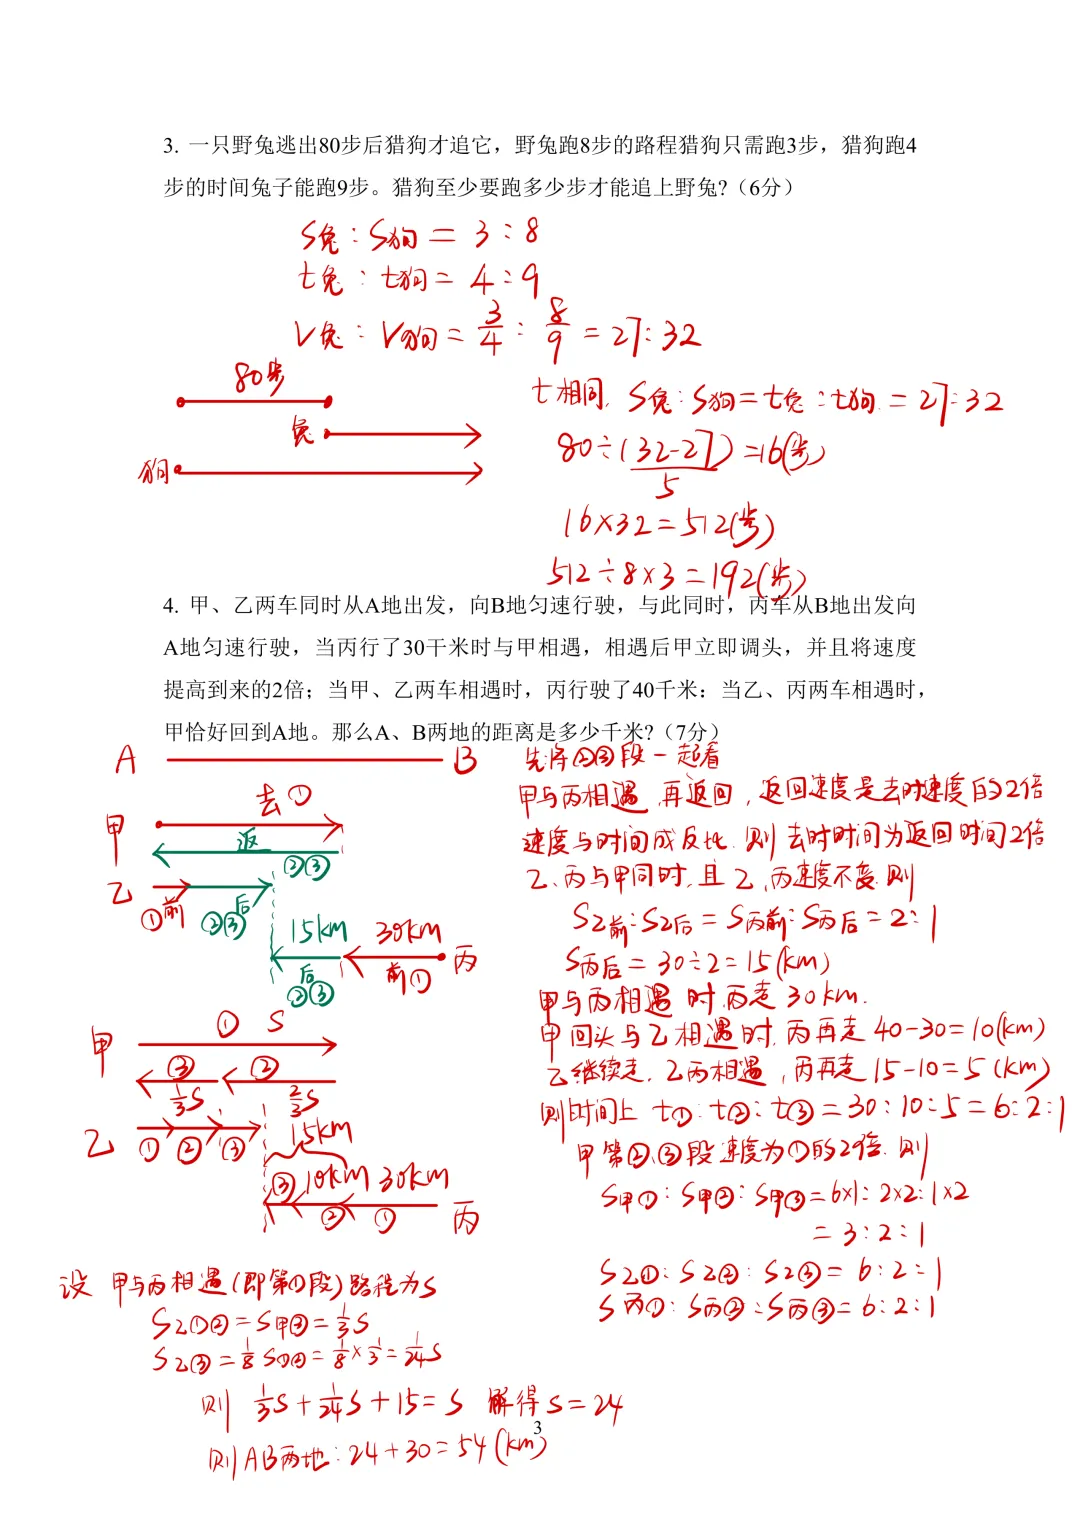 3. 一只野兔逃出80步后猎狗才追它，野兔跑8步的路程猎狗只需跑3步，猎狗跑4
步的时间兔子能跑9步。猎狗至少要跑多少步才能追上野兔?（6分）
S兔：S狗 = 3：8
t兔：t狗 = 4：9
V兔：V狗 = 3/4：8/9 = 27：32
80步
兔
狗
t相同，S兔：S狗 = t兔：t狗 = 27：32
80÷(32-27) = 16(步)
5
16×32 = 512(步)
512÷8×3 = 192(步)
4. 甲、乙两车同时从A地出发，向B地匀速行驶，与此同时，丙车从B地出发向
A地匀速行驶，当丙行了30千米时与甲相遇，相遇后甲立即调头，并且将速度
提高到来的2倍；当甲、乙两车相遇时，丙行驶了40千米：当乙、丙两车相遇时，
甲恰好回到A地。那么A、B两地的距离是多少千米?（7分）
A B
去①
甲
返
②③
乙
①前
②③后
15km 30km
后②③
前①
丙
先将②③段一起看
甲与丙相遇，再返回，返回速度是去时速度的2倍
速度与时间成反比，则去时时间为返回时间2倍
乙、丙与甲同时，且乙、丙速度不变，则
S乙前：S乙后 = S丙前：S丙后 = 2：1
S丙后 = 30÷2 = 15(km)
甲与丙相遇时，丙走30km.
甲回头与乙相遇时，丙再走40-30=10(km)
乙继续走，乙丙相遇，丙再走15-10=5(km)
则时间上 t①：t②：t③ = 30：10：5 = 6：2：1
甲第②、③段速度为①的2倍，则
S甲①：S甲②：S甲③ = 6×1：2×2：1×2
= 3：2：1
S乙①：S乙②：S乙③ = 6：2：1
S丙①：S丙②：S丙③ = 6：2：1
① S
甲
③ ②
1/3S 2/3S
乙
① ② ③
15km
③ 10km 30km
② ①
丙
设 甲与丙相遇(即第①段)路程为S
S乙①② = S甲③ = 1/3S
S乙③ = 1/8 S①② = 1/8×1/3 = 1/24S
则 1/3S + 1/24S + 15 = S 解得S = 24
3
则AB两地：24+30 = 54(km)